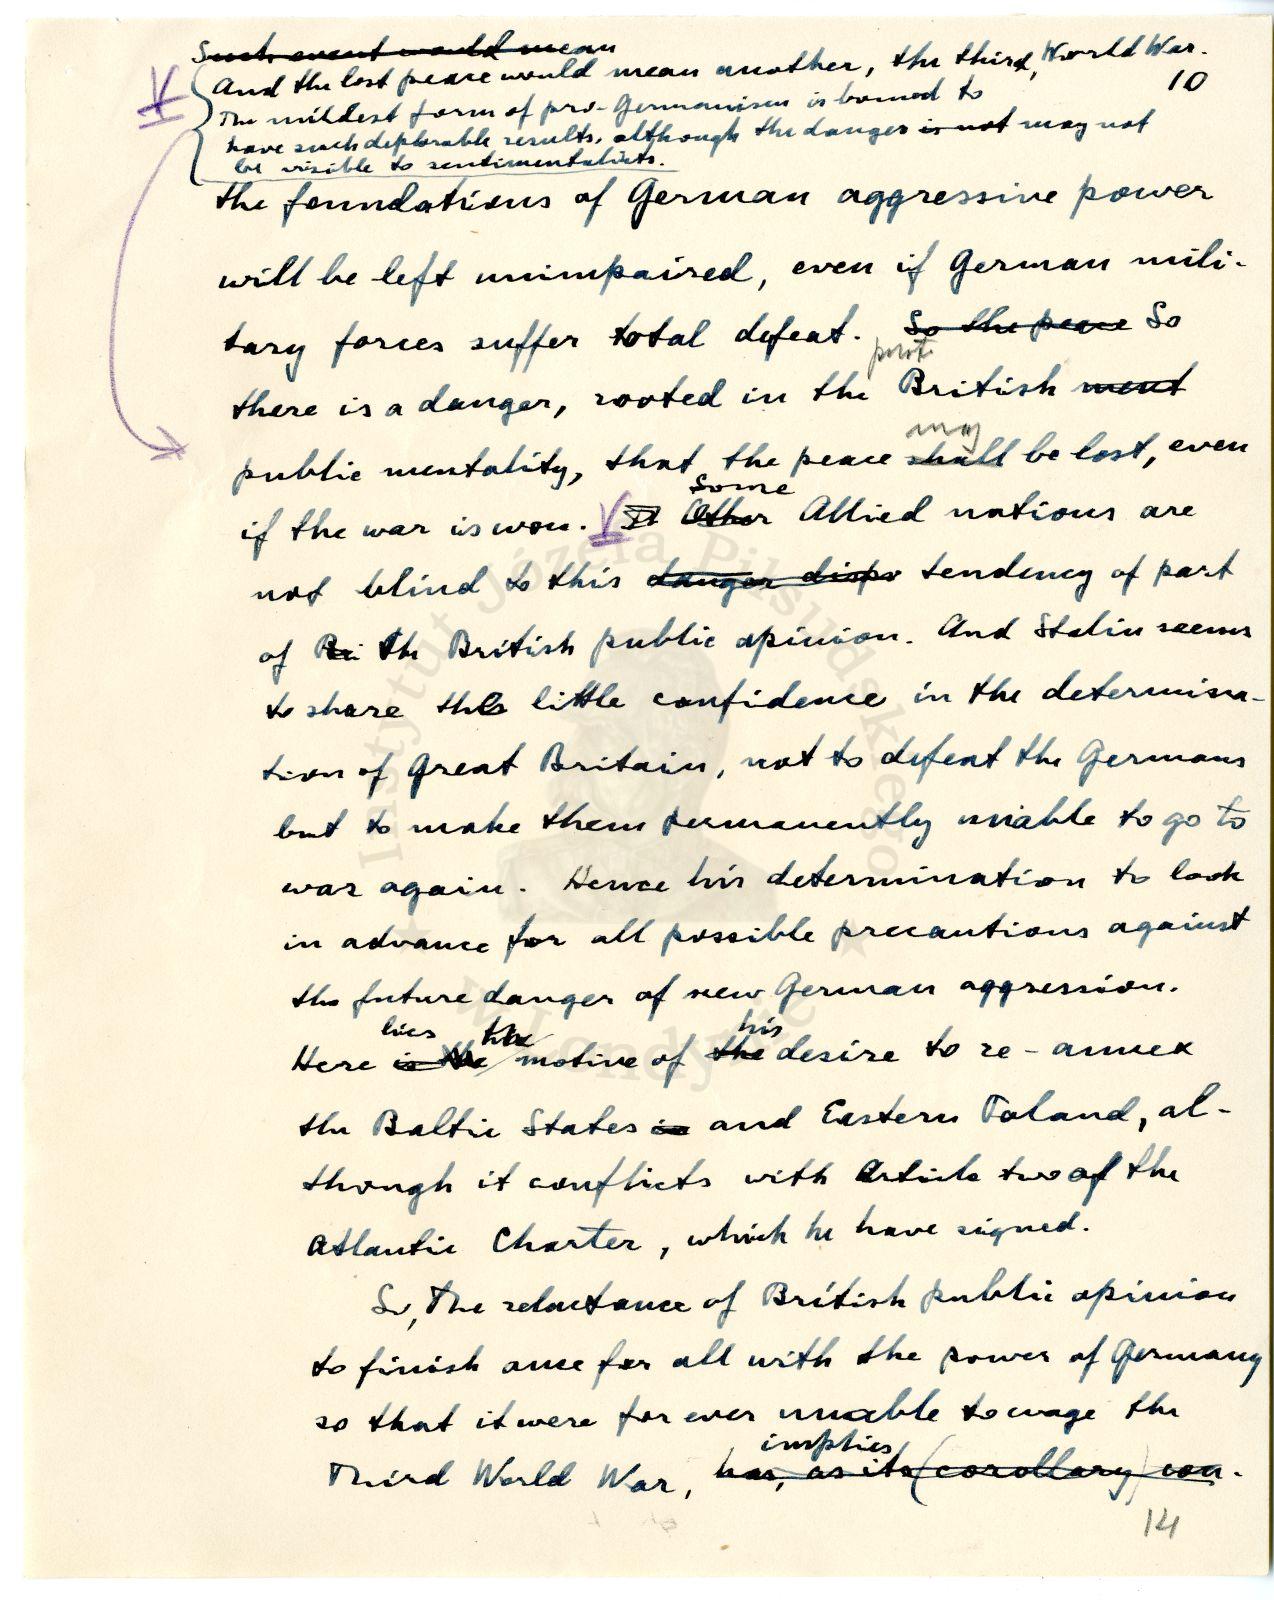 Such event would mean
And the lost peace would mean another, the third, World War.
10
The mildest form of pro-Germanism is bound to
have such deplorable results, although the danger is not may not
be visible to sentimentalists.
the foundations of German aggressive power
will be left unimpaired, even if German mili-
tary forces suffer total defeat. So the peace So
there is a danger, rooted in the British ment
public mentality, that the peace shall may be lost, even
if the war is won. Other Some Allied nations are
not blind to this danger dispo tendency of part
of Bri the British public opinion. And Stalin seems
to share the little confidence in the determina-
tion of Great Britain, not to defeat the Germans
but to make them permanently unable to go to
war again. Hence his determination to look
in advance for all possible precautions against
the future danger of new German aggression.
Here is the lies the motive of the his desire to re-annex
the Baltic States in and Eastern Poland, al-
though it conflicts with Article two of the
Atlantic Charter, which he have signed.
So, the reluctance of British public opinion
to finish once for all with the power of Germany
so that it were for ever unable to wage the
Third World War, has, as its (corollary) con- implies
14
Instytut Józefa Piłsudskiego
w Londynie